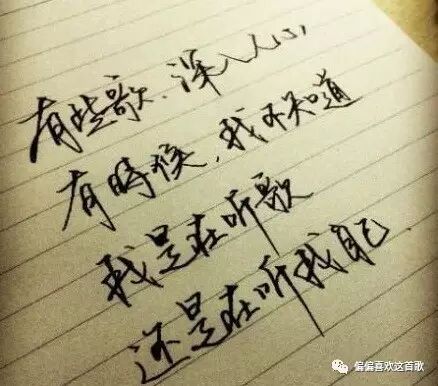 有些歌、深入人心
有時候，我不知道
我是在听歌
还是在听我自己
偏偏喜欢这首歌